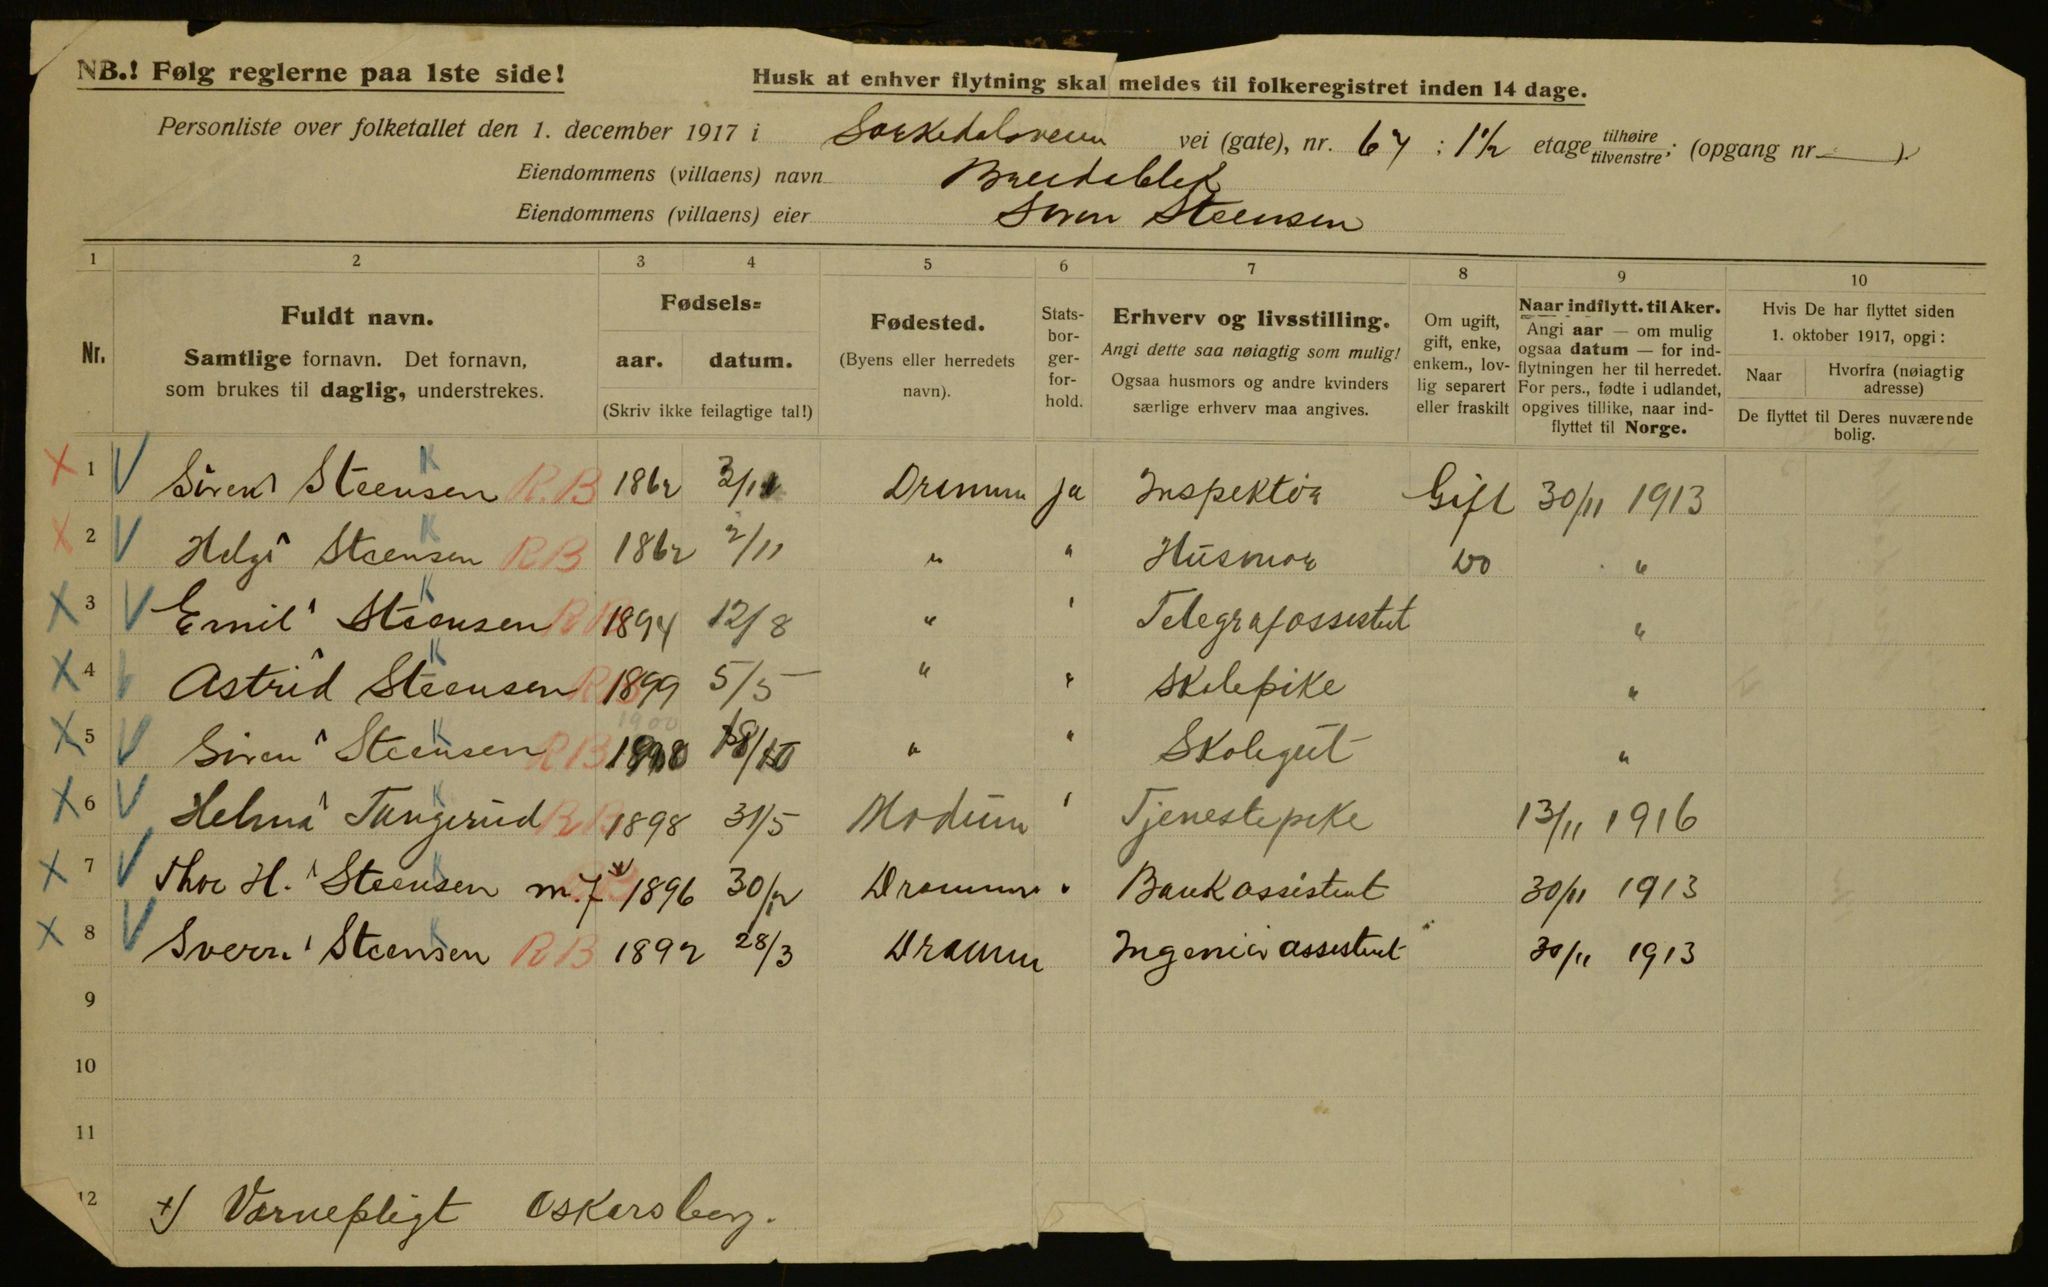 NB.! Følg reglerne paa 1ste side!
Husk at enhver flytning skal meldes til folkeregistret inden 14 dage.
Personliste over folketallet den 1. december 1917 i Sørkedalsveien vei (gate), nr. 67 ; 1 1/2 etage tilhøire tilvenstre; (opgang nr. — ).
Eiendommens (villaens) navn Breidablik
Eiendommens (villaens) eier Søren Steensen
1 2 3 4 5 6 7 8 9 10
Nr.
Fuldt navn.
Samtlige fornavn. Det fornavn,
som brukes til daglig, understrekes.
Fødsels=
aar. datum.
(Skriv ikke feilagtige tal!)
Fødested.
(Byens eller herredets
navn).
Stats-
bor-
ger-
for-
hold.
Erhverv og livsstilling.
Angi dette saa nøiagtig som mulig!
Ogsaa husmors og andre kvinders
særlige erhverv maa angives.
Om ugift,
gift, enke,
enkem., lov-
lig separert
eller fraskilt
Naar indflytt. til Aker.
Angi aar — om mulig
ogsaa datum — for ind-
flytningen her til herredet.
For pers., fødte i udlandet,
opgives tillike, naar ind-
flyttet til Norge.
Hvis De har flyttet siden
1. oktober 1917, opgi:
Naar Hvorfra (nøiagtig
adresse)
De flyttet til Deres nuværende
bolig.
X 1 V Søren Steensen K R.B 1862 3/11 Drammen ja Inspektør Gift 30/11 1913
X 2 V Helga Steensen K RB 1862 2/11 " " Husmor Do "
X 3 V Emil Steensen K RB 1894 12/8 " ' Telegrafassistent "
X 4 V Astrid Steensen K RB 1899 5/5 " " Skolepike "
1900
X 5 V Søren Steensen K RB 18/10 " " Skolegut "
X 6 V Helma Tangerud K RB 1898 31/5 Modum ' Tjenestepike 13/11 1916
X 7 V Thor H. Steensen K m.7 RB 1896 30/12 Drammen " Bankassistent 30/11 1913
X 8 V Sverre Steensen K RB 1892 28/3 Drammen Ingeniør assistent " 30/11 1913
9
10
11
12 x) Værnepligt Oskarsborg.